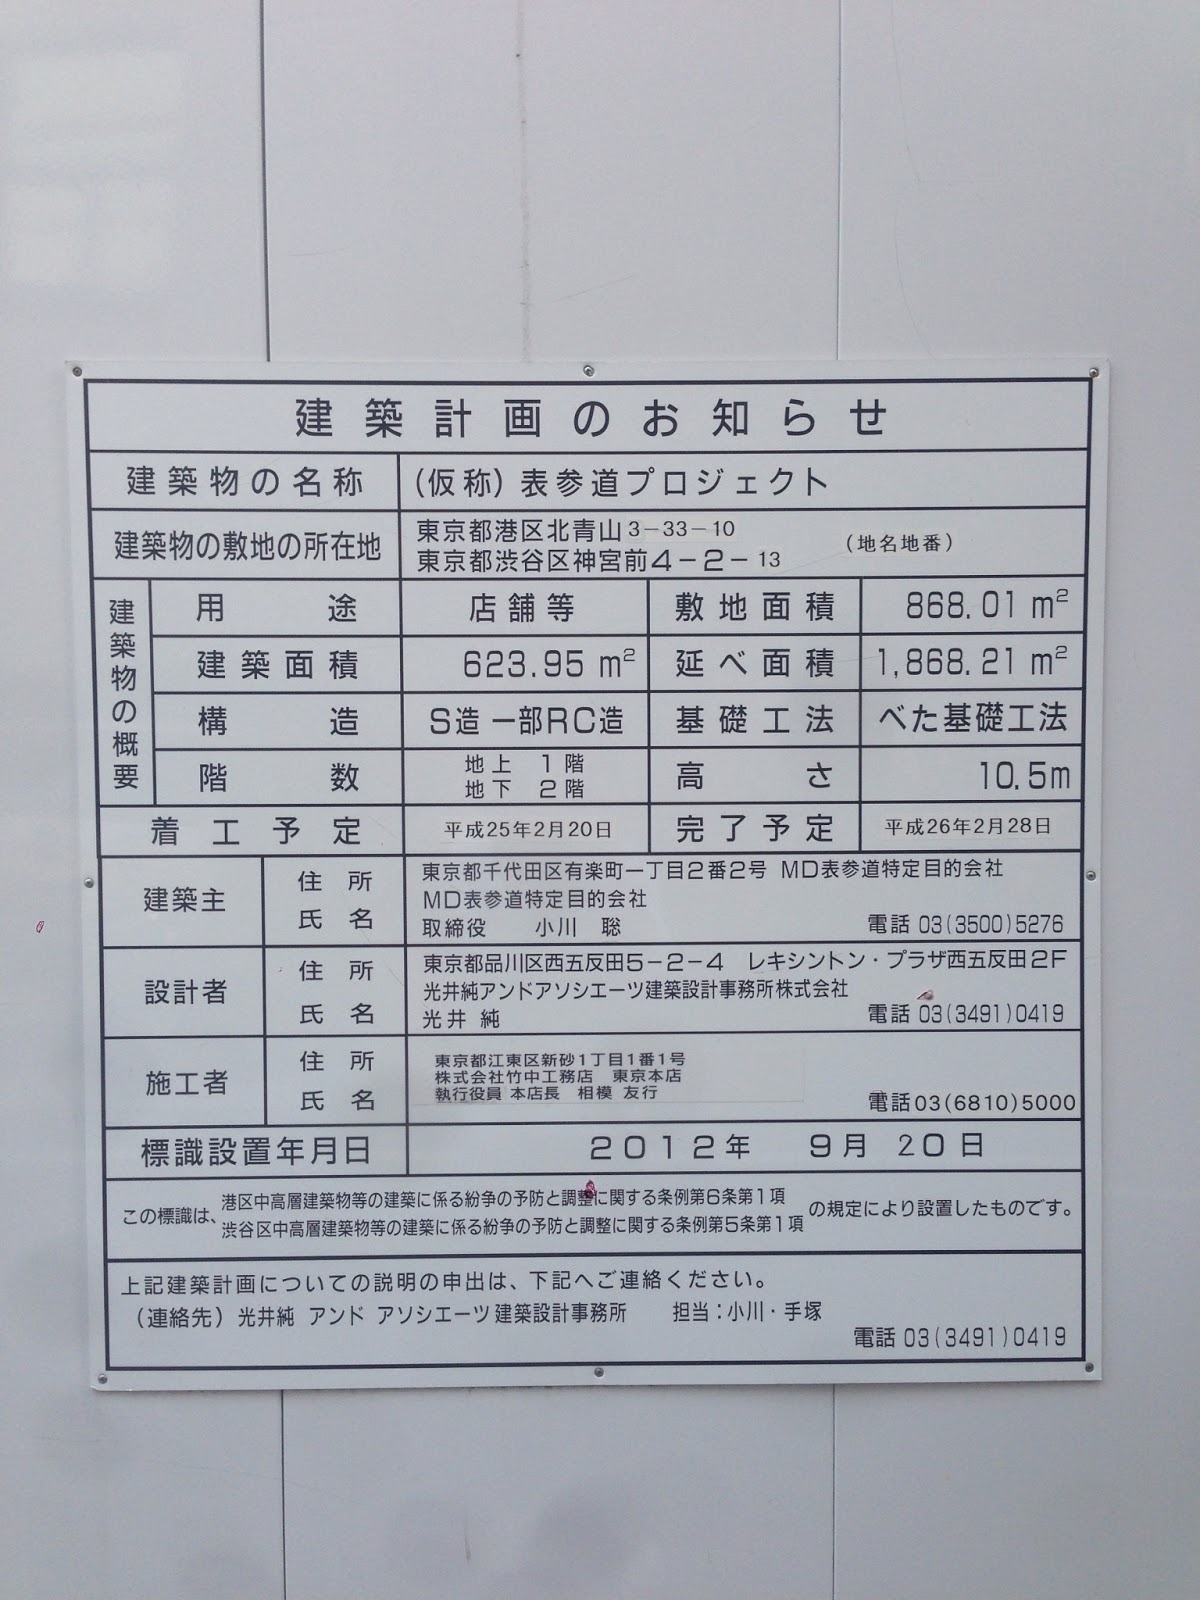 建築計画のお知らせ
建築物の名称 (仮称)表参道プロジェクト
建築物の敷地の所在地 東京都港区北青山3-33-10
東京都渋谷区神宮前4-2-13 (地名地番)
建築物の概要
用途 店舗等 敷地面積 868.01m²
建築面積 623.95m² 延べ面積 1,868.21m²
構造 S造 一部RC造 基礎工法 べた基礎工法
階数 地上 1階 高さ 10.5m
地下 2階
着工予定 平成25年2月20日 完了予定 平成26年2月28日
建築主 住所 氏名
東京都千代田区有楽町一丁目2番2号 MD表参道特定目的会社
MD表参道特定目的会社
取締役 小川 聡 電話 03(3500)5276
設計者 住所 氏名
東京都品川区西五反田5-2-4 レキシントン・プラザ西五反田2F
光井純アンドアソシエーツ建築設計事務所株式会社
光井 純 電話 03(3491)0419
施工者 住所 氏名
東京都江東区新砂1丁目1番1号
株式会社竹中工務店 東京本店
執行役員 本店長 相模 友行
電話03(6810)5000
標識設置年月日 2012年 9月 20日
この標識は、港区中高層建築物等の建築に係る紛争の予防と調整に関する条例第6条第1項
渋谷区中高層建築物等の建築に係る紛争の予防と調整に関する条例第5条第1項 の規定により設置したものです。
上記建築計画についての説明の申出は、下記へご連絡ください。
(連絡先) 光井純 アンド アソシエーツ 建築設計事務所 担当:小川・手塚
電話 03(3491)0419